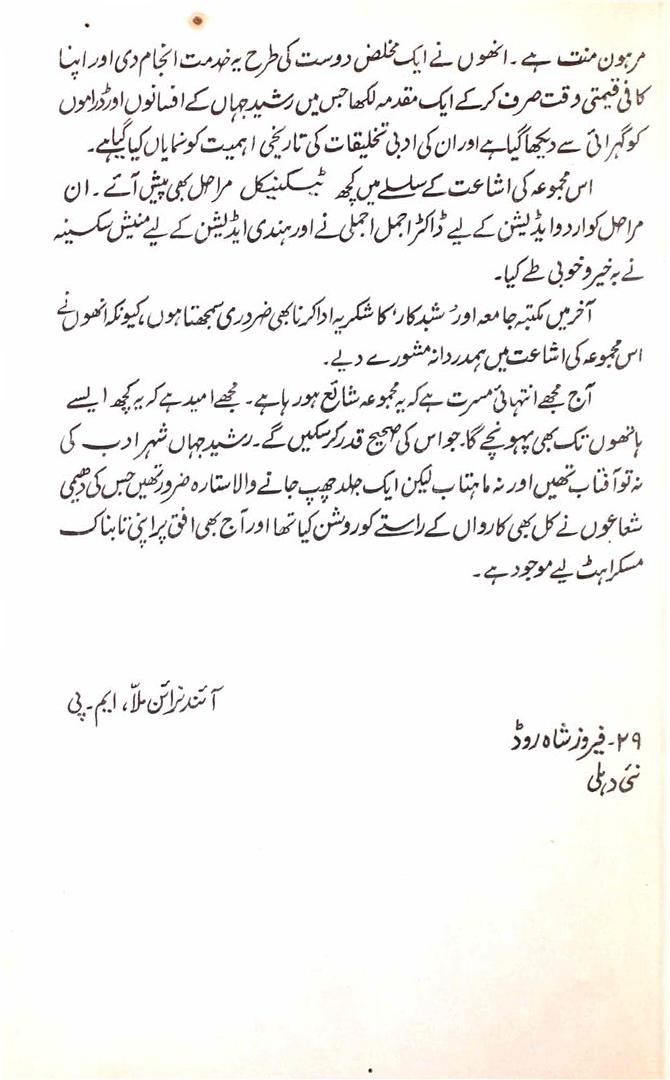 مرہون منت ہے۔ انھوں نے ایک مخلص دوست کی طرح یہ خدمت انجام دی اور اپنا
کافی قیمتی وقت صرف کر کے ایک مقدمہ لکھا جس میں رشید جہاں کے افسانوں اور ڈراموں
کو گہرائی سے دیکھا گیا ہے اور ان کی ادبی تخلیقات کی تاریخی اہمیت کو نمایاں کیا گیا ہے۔
اس مجموعہ کی اشاعت کے سلسلے میں کچھ ٹیکنیکل مراحل بھی پیش آئے۔ ان
مراحل کو اردو ایڈیشن کے لیے ڈاکٹر اجمل اجملی نے اور ہندی ایڈیشن کے لیے منیش سکسینہ
نے بہ خیر و خوبی طے کیا۔
آخر میں مکتبہ جامعہ اور ’شبدکار‘ کا شکریہ ادا کرنا بھی ضروری سمجھتا ہوں، کیونکہ انھوں نے
اس مجموعہ کی اشاعت میں ہمدردانہ مشورے دیے۔
آج مجھے انتہائی مسرت ہے کہ یہ مجموعہ شائع ہو رہا ہے۔ مجھے امید ہے کہ یہ کچھ ایسے
ہاتھوں تک بھی پہونچے گا۔ جو اس کی صحیح قدر کر سکیں گے۔ رشید جہاں شہر ادب کی
نہ تو آفتاب تھیں اور نہ ماہتاب لیکن ایک جلد چھپ جانے والا ستارہ ضرور تھیں جس کی دھیمی
شعاعوں نے کل بھی کارواں کے راستے کو روشن کیا تھا اور آج بھی افق پر اپنی تابناک
مسکراہٹ لیے موجود ہے۔
آنند نرائن ملاّ، ایم۔ پی
۲۹۔ فیروز شاہ روڈ
نئی دہلی